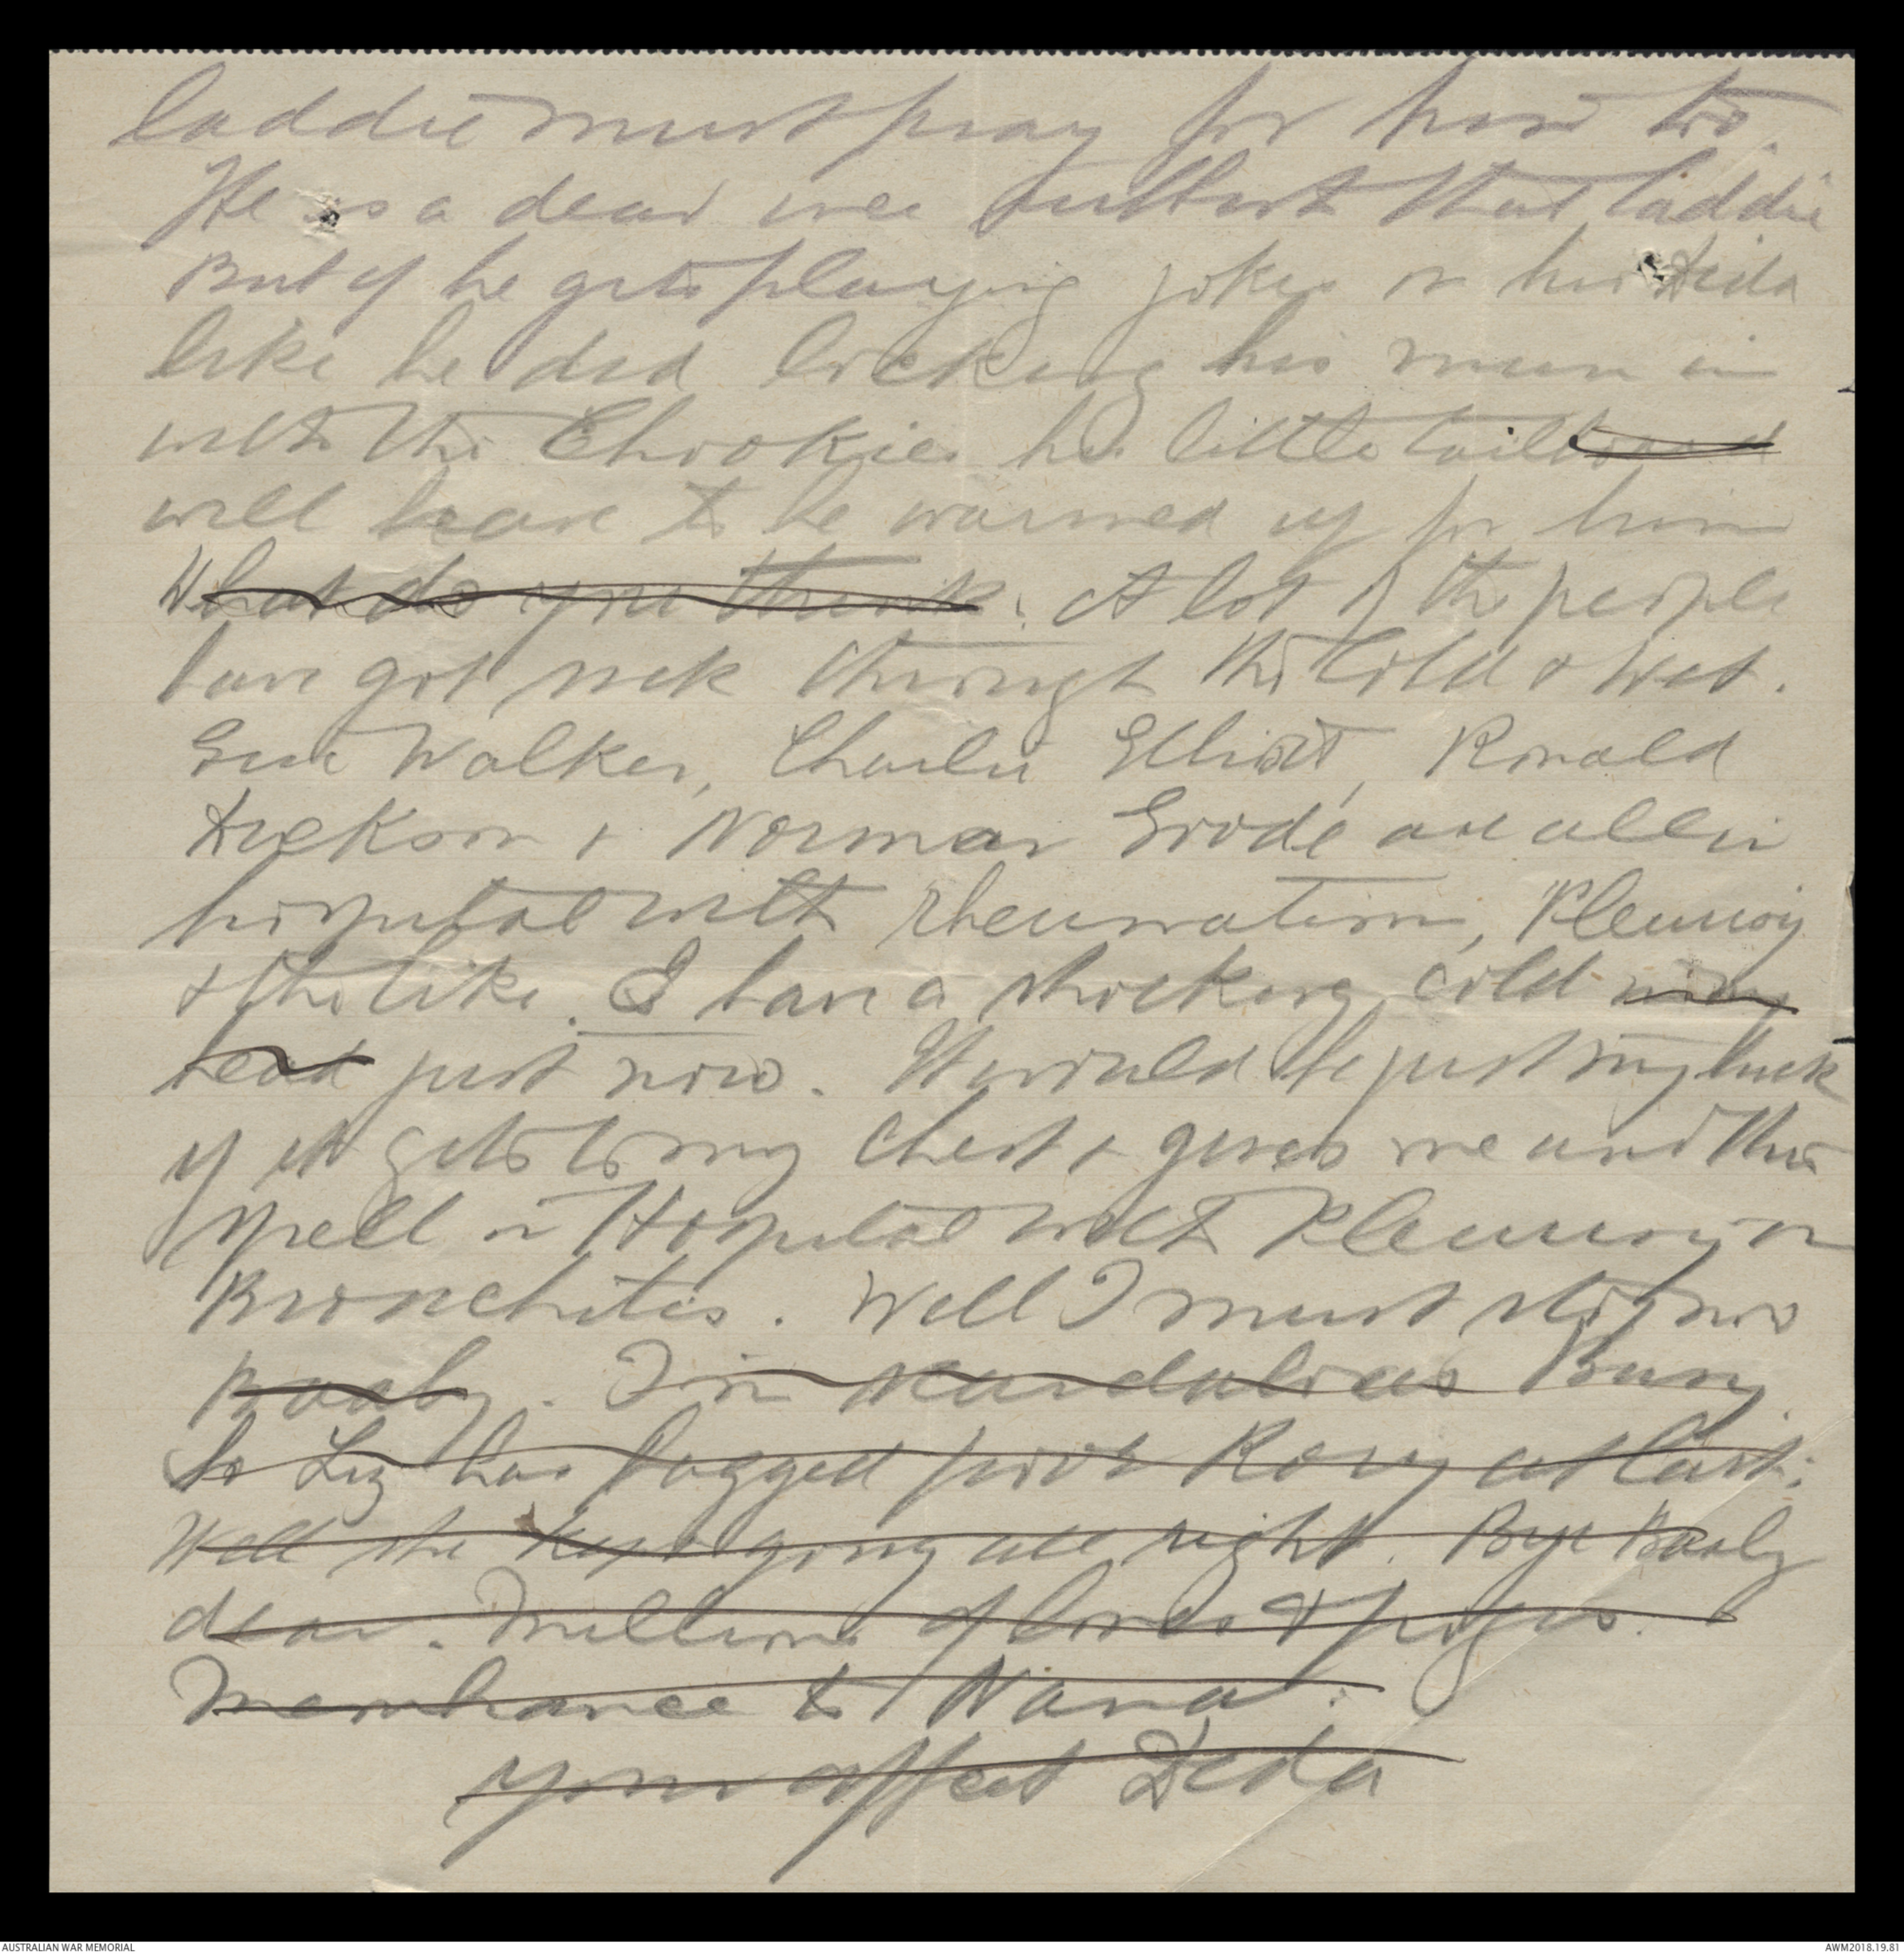 laddie must pray for him too.
He is a dear wee that laddie
But if he gets playing jokes on his Dida
like he did locking his mum in
with the Chookies his little tailboard
will have to be warmed up for him
What do you think. A lot of the people
have got sick through the Cold & Wet.
Walker, Charlie Elliott, Ronald
Dickson & Norman are all in
hospital with rheumatism, Pleurisy
& the like. I have a shocking cold in my
head just now. It would be just my luck
if it gets to my Chest & gives me another
spell in Hospital with Pleurisy or
Bronchitis. Well I must stop now
Baaby. I'm scandalous Busy
So Liz has pegged poor Rory at last.
Well she kept going all right. Bye Baaby
dear. Millions of loves &
Membrance to Nana.
Your affect Dida
AUSTRALIAN WAR MEMORIAL
AWM2018.19.81